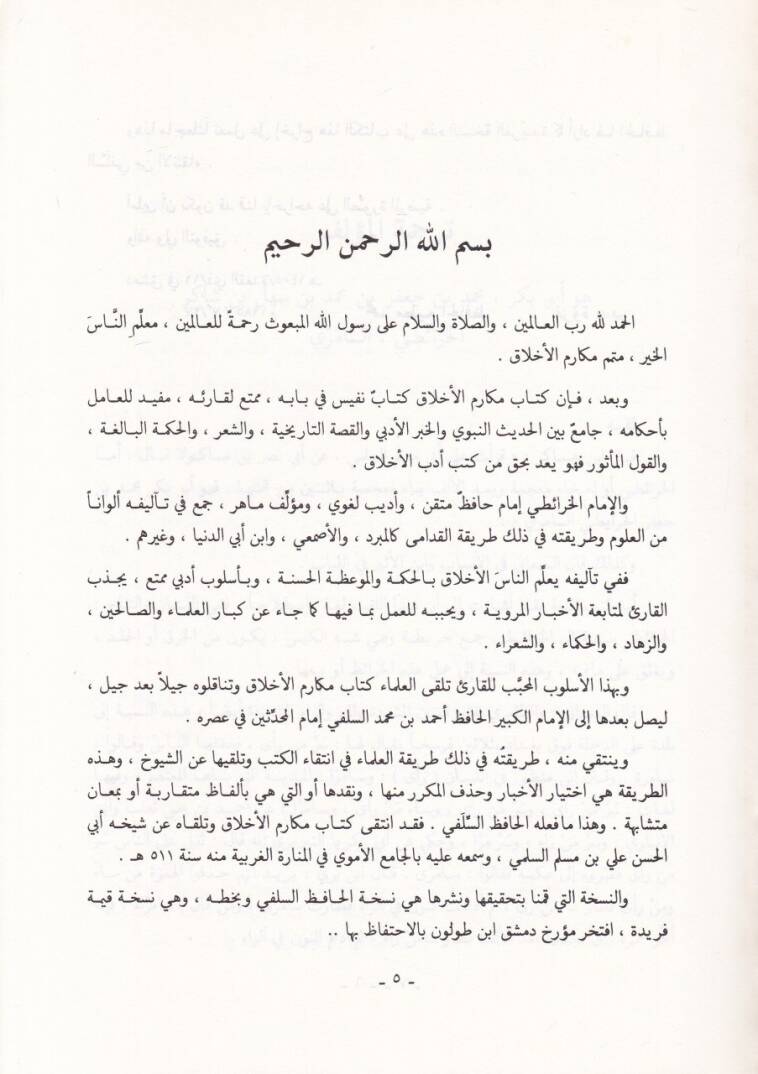 بسم الله الرحمن الرحيم
الحمد لله رب العالمين ، والصلاة والسلام على رسول الله المبعوث رحمةً للعالمين ، معلّمِ النَّاسَ
الخير ، متمم مكارم الأخلاق .
وبعد ، فإن كتاب مكارم الأخلاق كتابٌ نفيس في بابه ، ممتع لقارئه ، مفيد للعامل
بأحكامه ، جامعٌ بين الحديث النبوي والخبر الأدبي والقصة التاريخية ، والشعر ، والحكمة البالغة ،
والقول المأثور فهو يعد بحق من كتب أدب الأخلاق .
والإمام الخرائطي إمام حافظٌ متقن ، وأديب لغوي ، ومؤلِّف ماهر ، جمع في تآليفه ألواناً
من العلوم وطريقته في ذلك طريقة القدامى كالمبرد ، والأصمعي ، وابن أبي الدنيا ، وغيرهم .
ففي تآليفه يعلّم الناسَ الأخلاق بالحكمة والموعظة الحسنة ، وبأسلوب أدبي ممتع ، يجذب
القارئ لمتابعة الأخبار المروية ، ويحببه للعمل بما فيها كما جاء عن كبار العلماء والصالحين ،
والزهاد ، والحكماء ، والشعراء .
وبهذا الأسلوب المحبَّب للقارئ تلقى العلماء كتاب مكارم الأخلاق وتناقلوه جيلاً بعد جيل ،
ليصل بعدها إلى الإمام الكبير الحافظ أحمد بن محمد السلفي إمام المحدِّثين في عصره .
وينتقي منه ، طريقتُه في ذلك طريقة العلماء في انتقاء الكتب وتلقيها عن الشيوخ ، وهذه
الطريقة هي اختيار الأخبار وحذف المكرر منها ، ونقدها أو التي هي بألفاظ متقاربة أو بمعان
متشابهة . وهذا ما فعله الحافظ السِّلَفي . فقد انتقى كتاب مكارم الأخلاق وتلقاه عن شيخه أبي
الحسن علي بن مسلم السلمي ، وسمعه عليه بالجامع الأموي في المنارة الغربية منه سنة ٥١١ هـ .
والنسخة التي قمنا بتحقيقها ونشرها هي نسخة الحافظ السلفي وبخطه ، وهي نسخة قيمة
فريدة ، افتخر مؤرخ دمشق ابن طولون بالاحتفاظ بها ..
ـ ٥ ـ